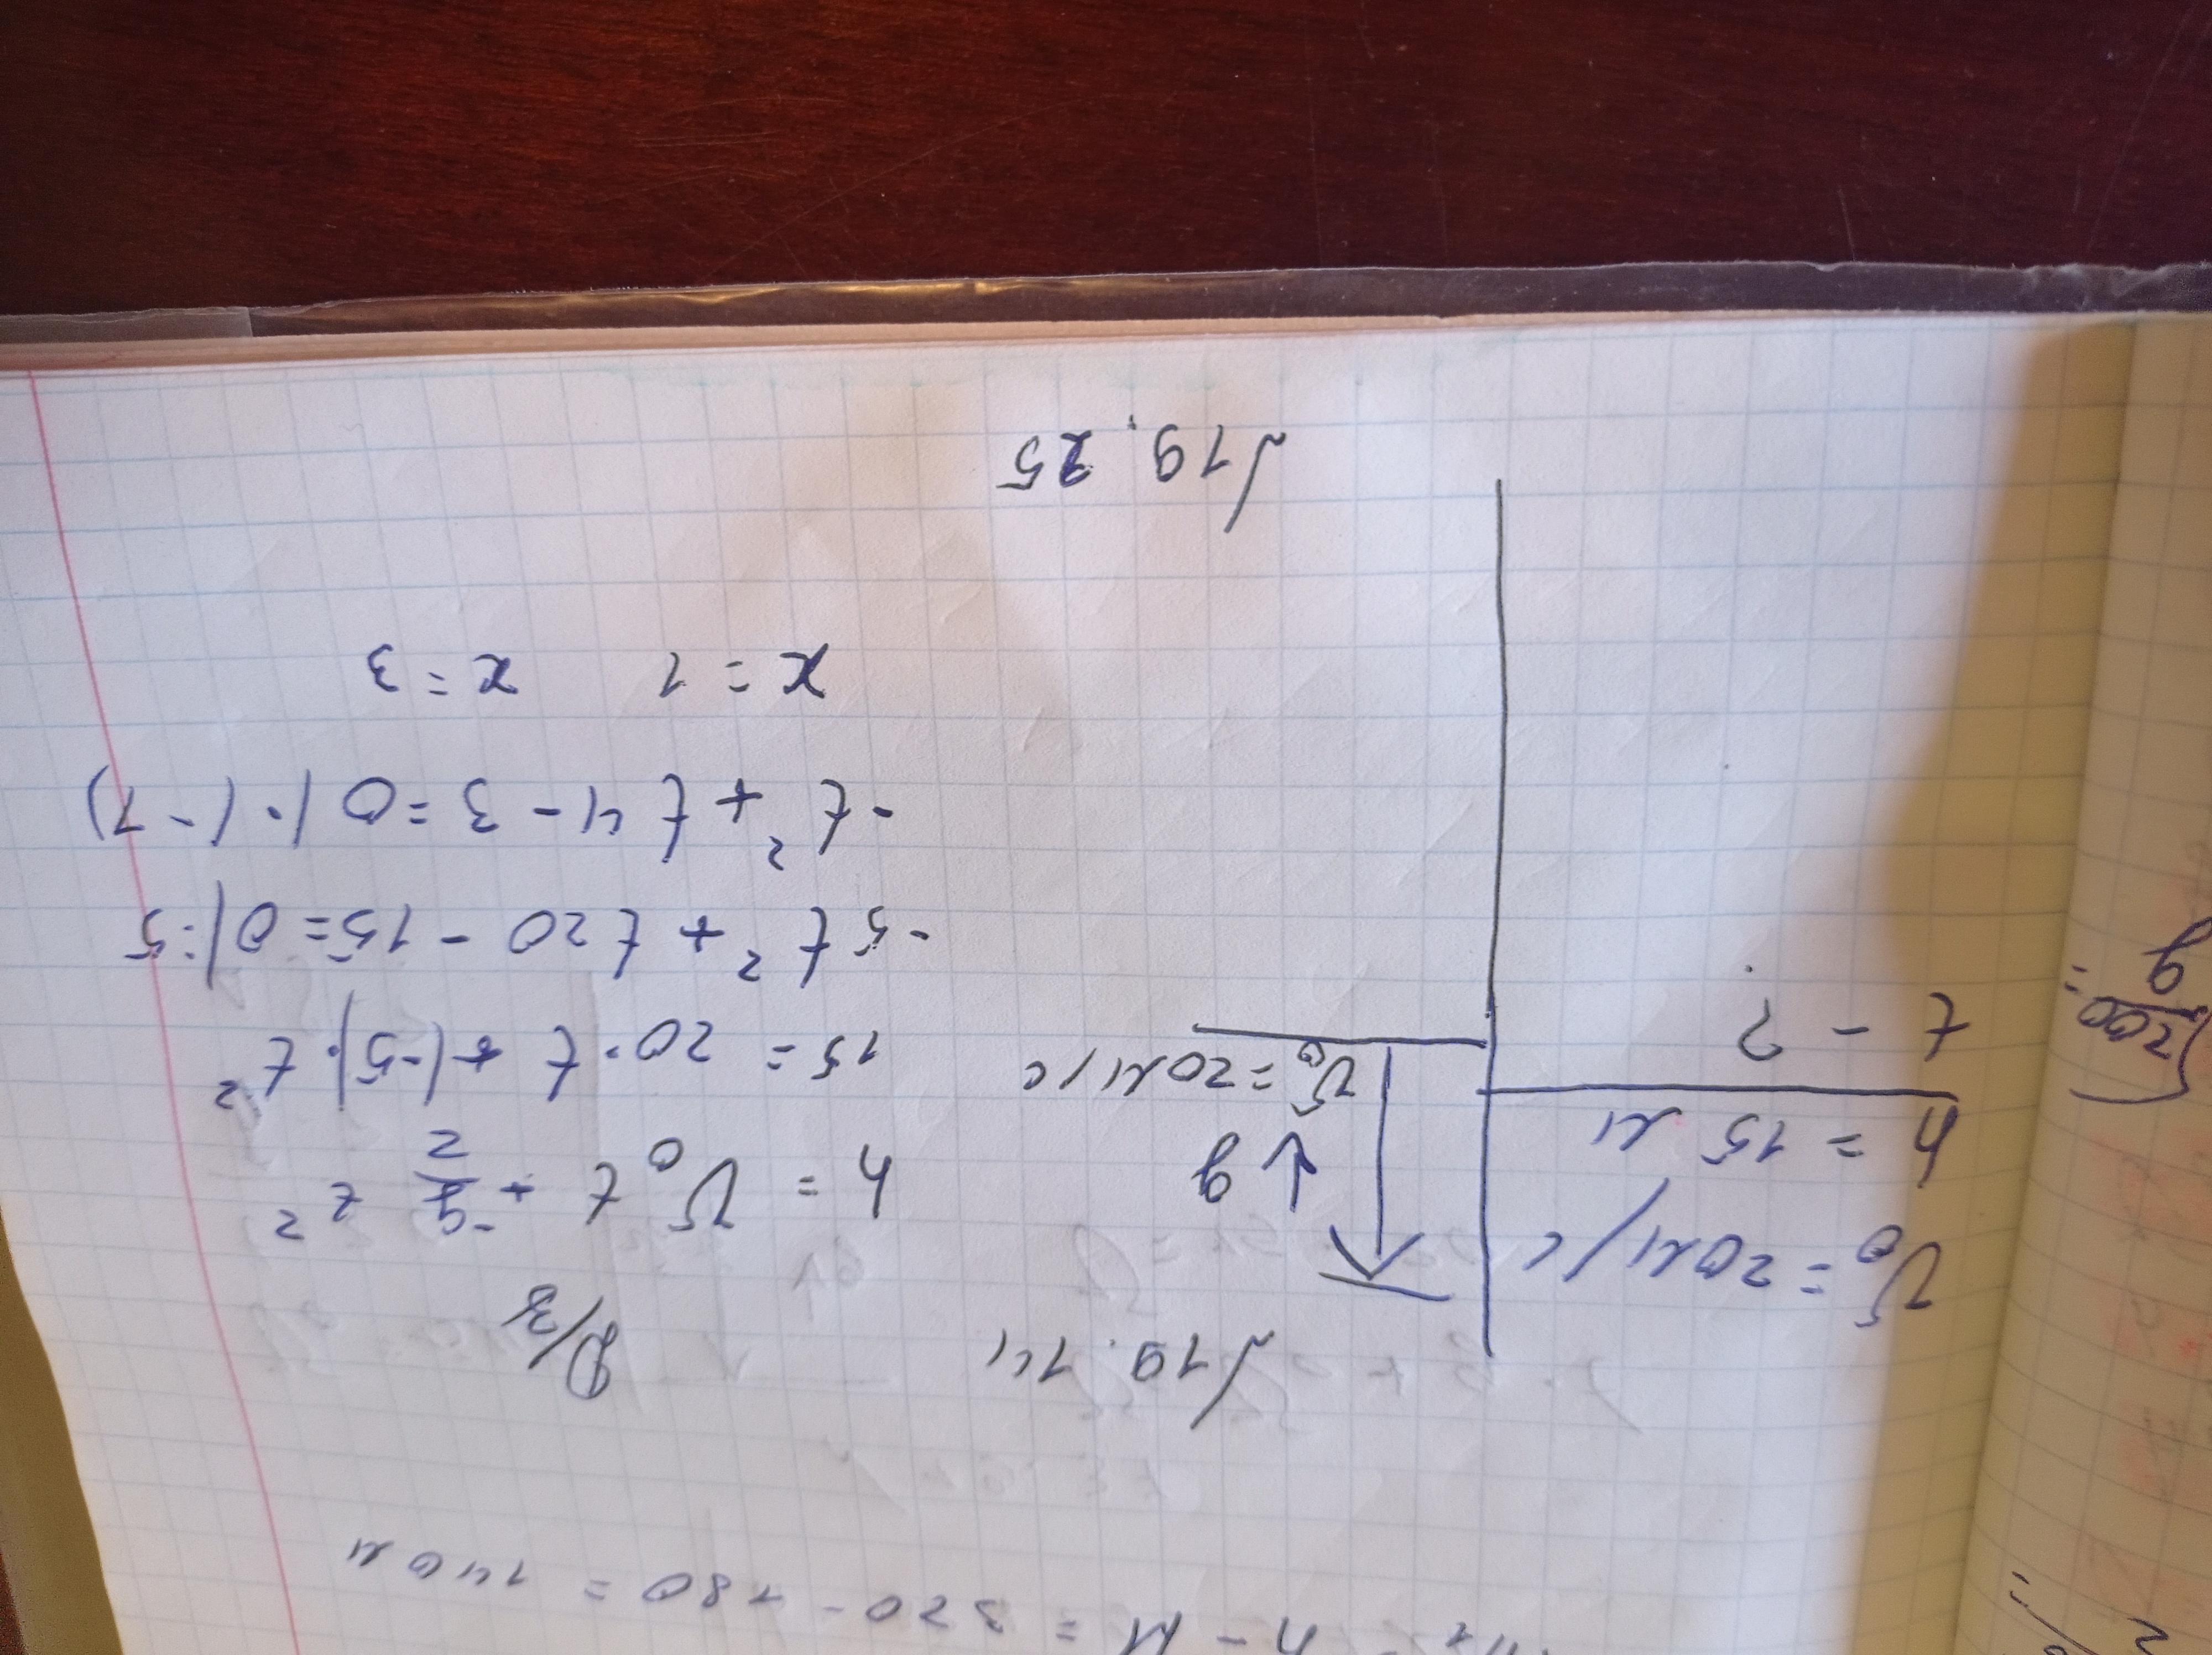 h - H = 320 - 180 = 140 м
√19.14
Д/З
V₀ = 20м/с
h = 15 м
t - ?
↓ g
V₀ = 20м/с
h = V₀ t + -g/2 t²
15 = 20 · t + (-5) · t²
-5t² + t20 - 15 = 0 |:5
-t² + t4 - 3 = 0 |·(-1)
x = 1 x = 3
√19.25
200
g
=